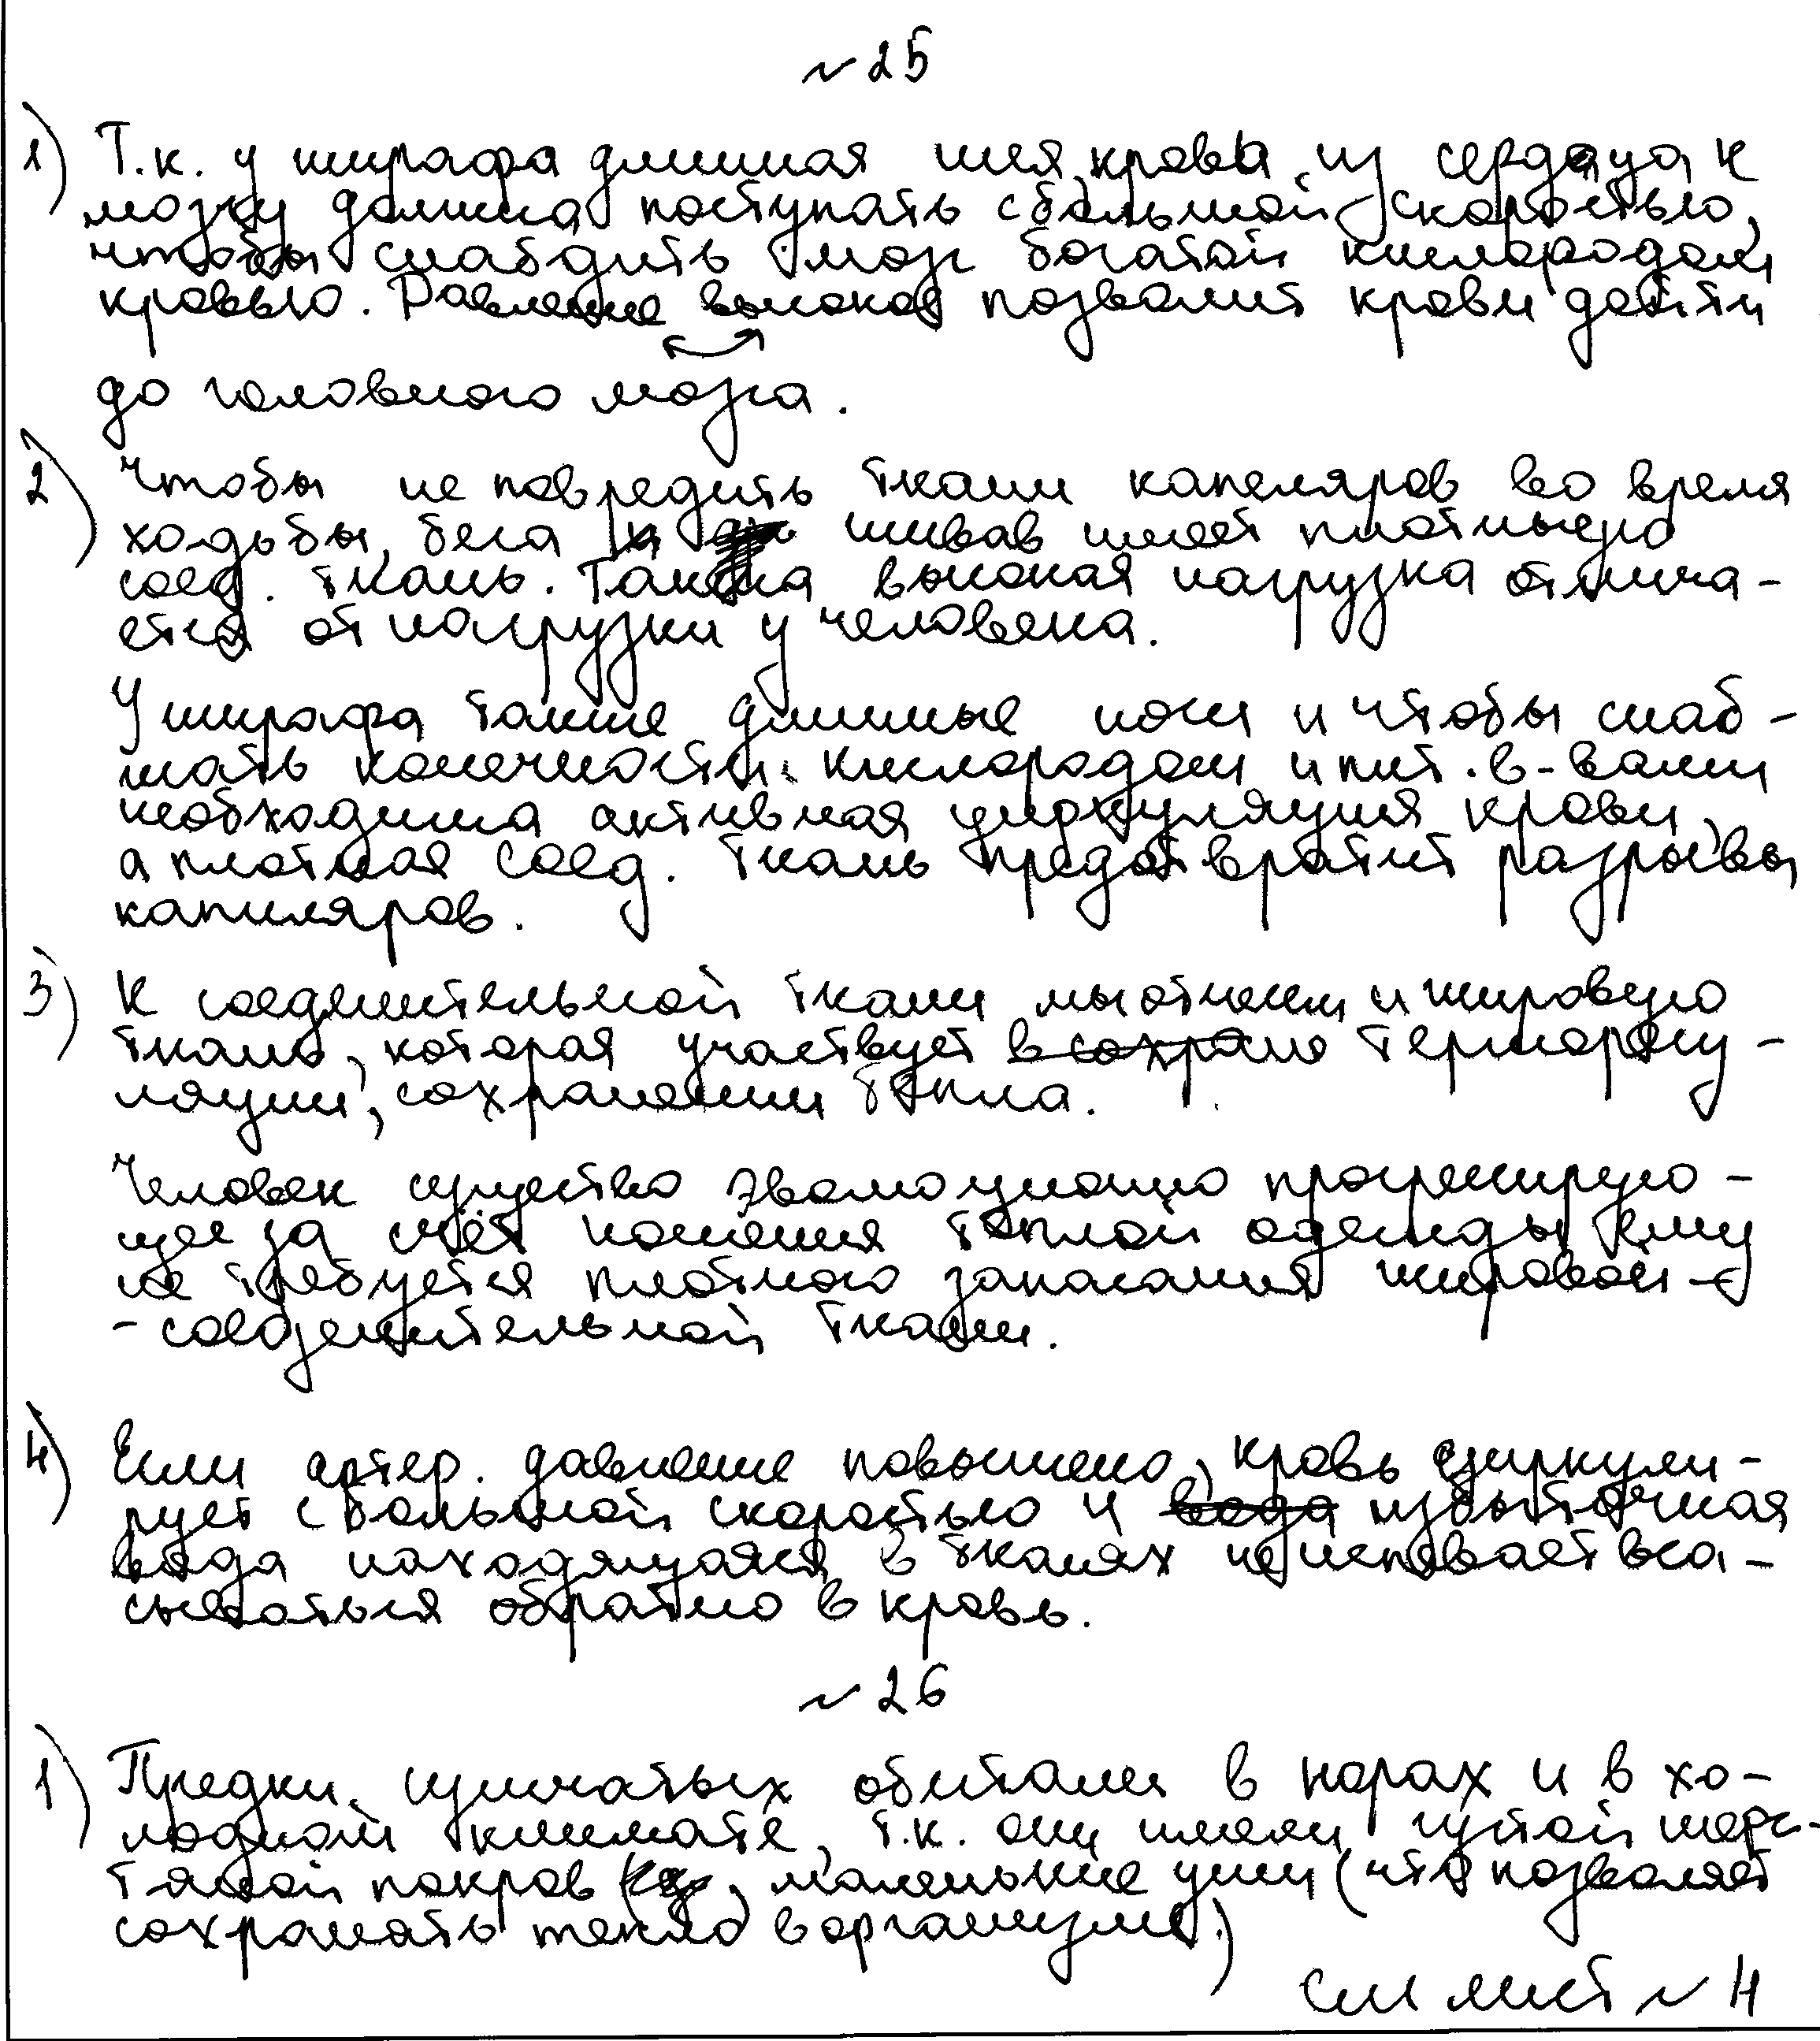 № 25
1) Т.к. у жирафа длинная шея, кровь из сердца к
мозгу должна поступать с большой скоростью,
чтобы снабдить мозг богатой кислородом
кровью. Давление высокое позволит крови дойти
до головного мозга.
2) Чтобы не повредить ткани капеляров во время
ходьбы, бега жираф имеет плотную
соед. ткань. Такая высокая нагрузка отлича-
ется от нагрузки у человека.
У жирафа также длинные ноги и чтобы снаб-
жать конечности кислородом и пит. в-вами
необходима активная циркуляция крови,
а плотная соед. ткань предотвратит разрывы
капиляров.
3) К соединительной ткани мы отнесем и жировую
ткань, которая участвует в сохране терморегу-
ляции, сохранении тепла.
Человек существо эволюционно прогрессирую-
щее за счёт ношения теплой одежды ему
не требуется плотного запасания жировой-
-соединительной ткани.
4) Если артер. давление повышено, кровь циркули-
рует с большой скоростью и вода избыточная
вода находящаяся в тканях не успевает вса-
сываться обратно в кровь.
№ 26
1) Предки сумчатых обитали в норах и в хо-
лодном климате, т.к. они имели густой шерс-
тяной покров, маленькие уши (что позволяет
сохранать тепло в организме.)
см лист № 4